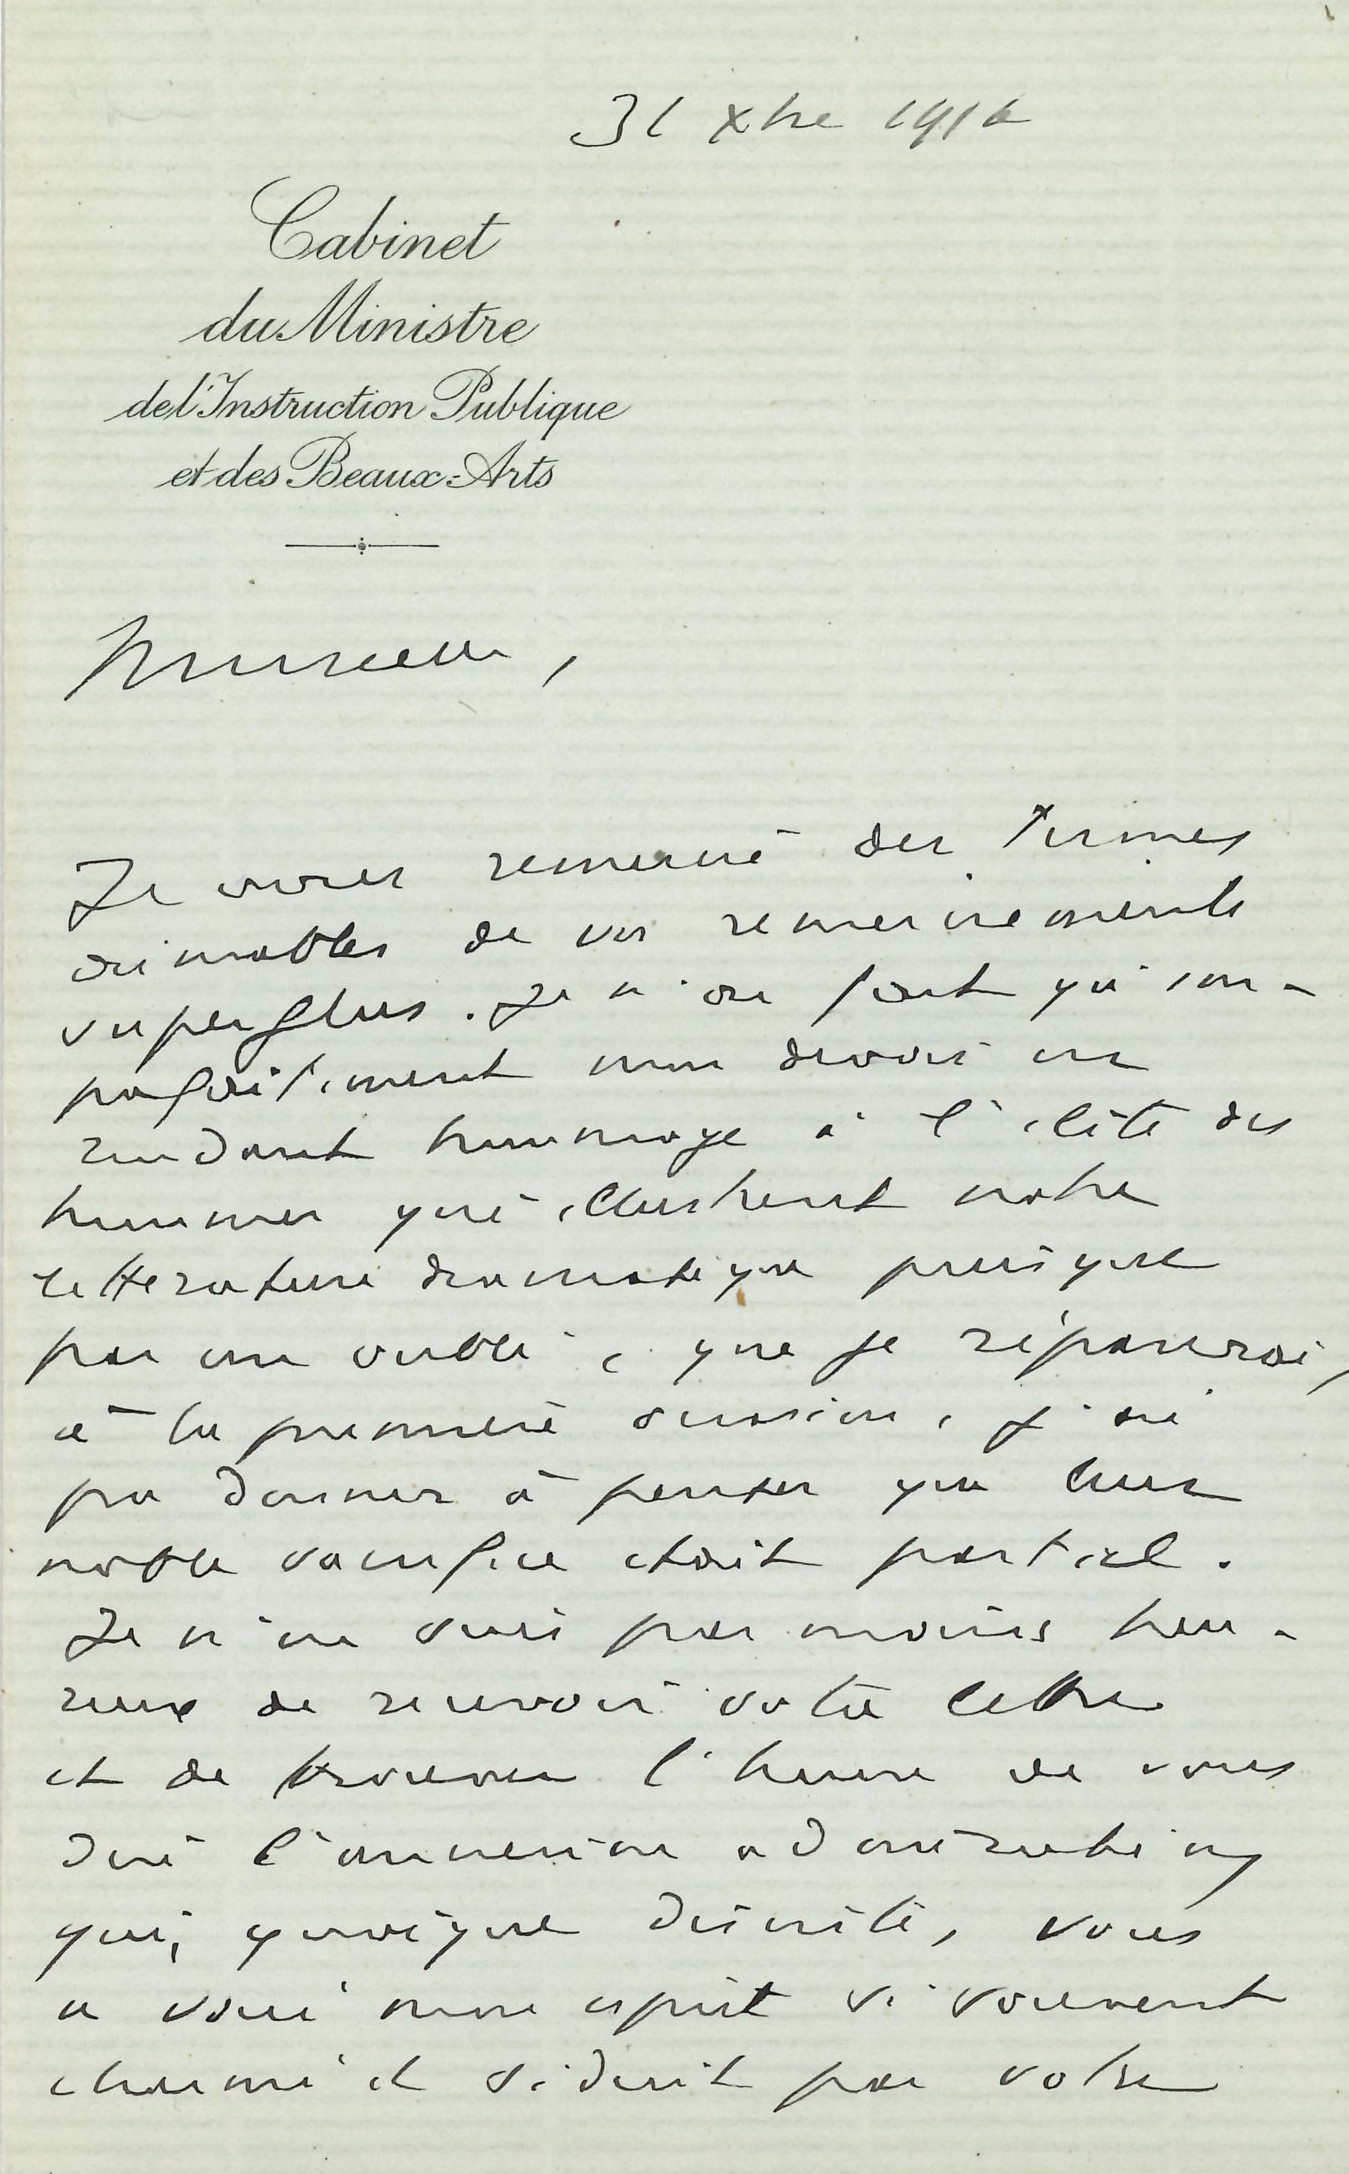 31 Xbre 1916
Cabinet
du Ministre
de l'Instruction Publique
et des Beaux-Arts
Monsieur,
Je vous remercie des termes
aimables de vos remerciements
superflus. Je n'ai fait qu'im-
parfaitement mon devoir en
rendant hommage à l'élite des
hommes qui illustrent notre
littérature dramatique puisque
par un oubli, que je réparerai,
à la première occasion, j'ai
pu donner à penser que leur
noble sacrifice était partiel.
Je n'en suis pas moins heu-
reux de recevoir votre lettre
et de trouver l'heure de vous
dire l'ancienne admiration
qui, quoique discrète, vous
a voué mon esprit si souvent
charmé et séduit par votre